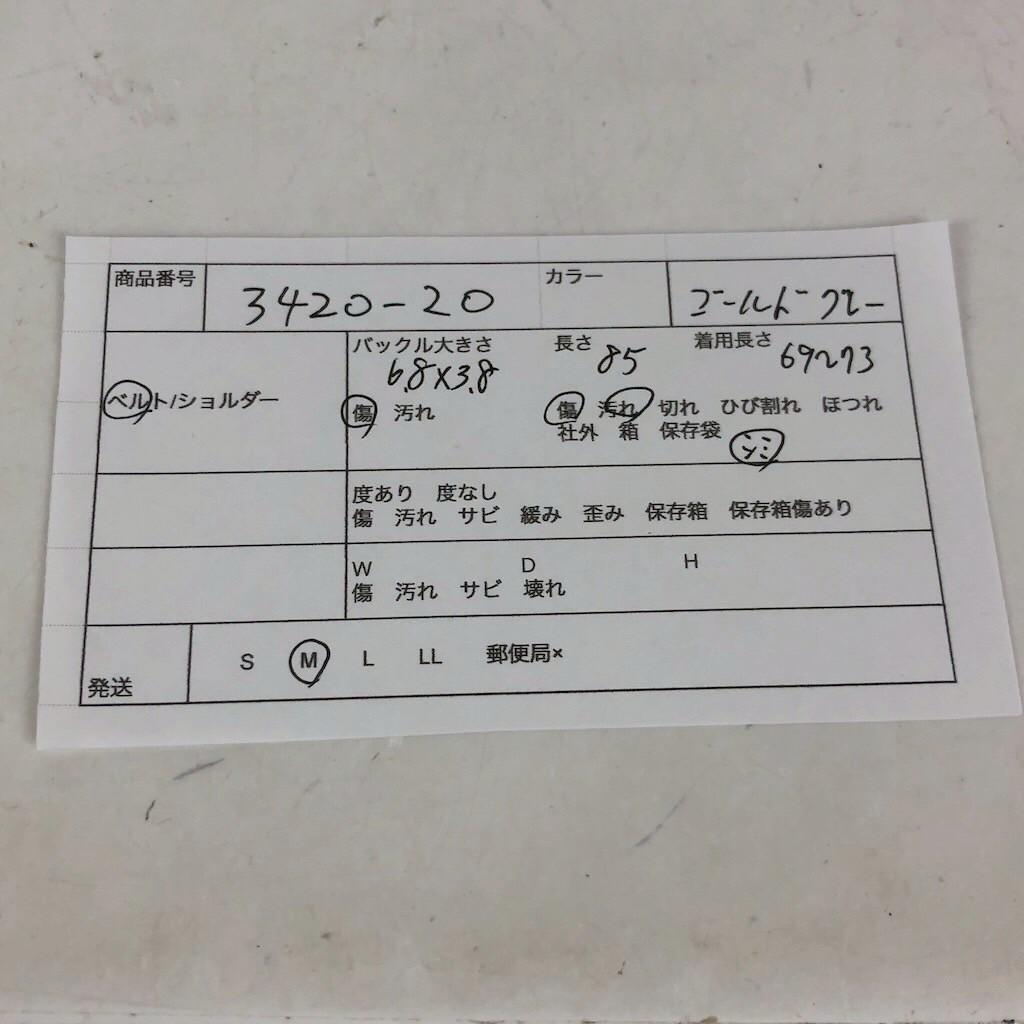 商品番号 3420-20 カラー ゴールド グレー
ベルト/ショルダー
バックル大きさ 6.8×3.8 長さ 85 着用長さ 69~73
傷 汚れ
傷 汚れ 切れ ひび割れ ほつれ
社外 箱 保存袋 シミ
度あり 度なし
傷 汚れ サビ 緩み 歪み 保存箱 保存箱傷あり
W D H
傷 汚れ サビ 壊れ
発送 S M L LL 郵便局×